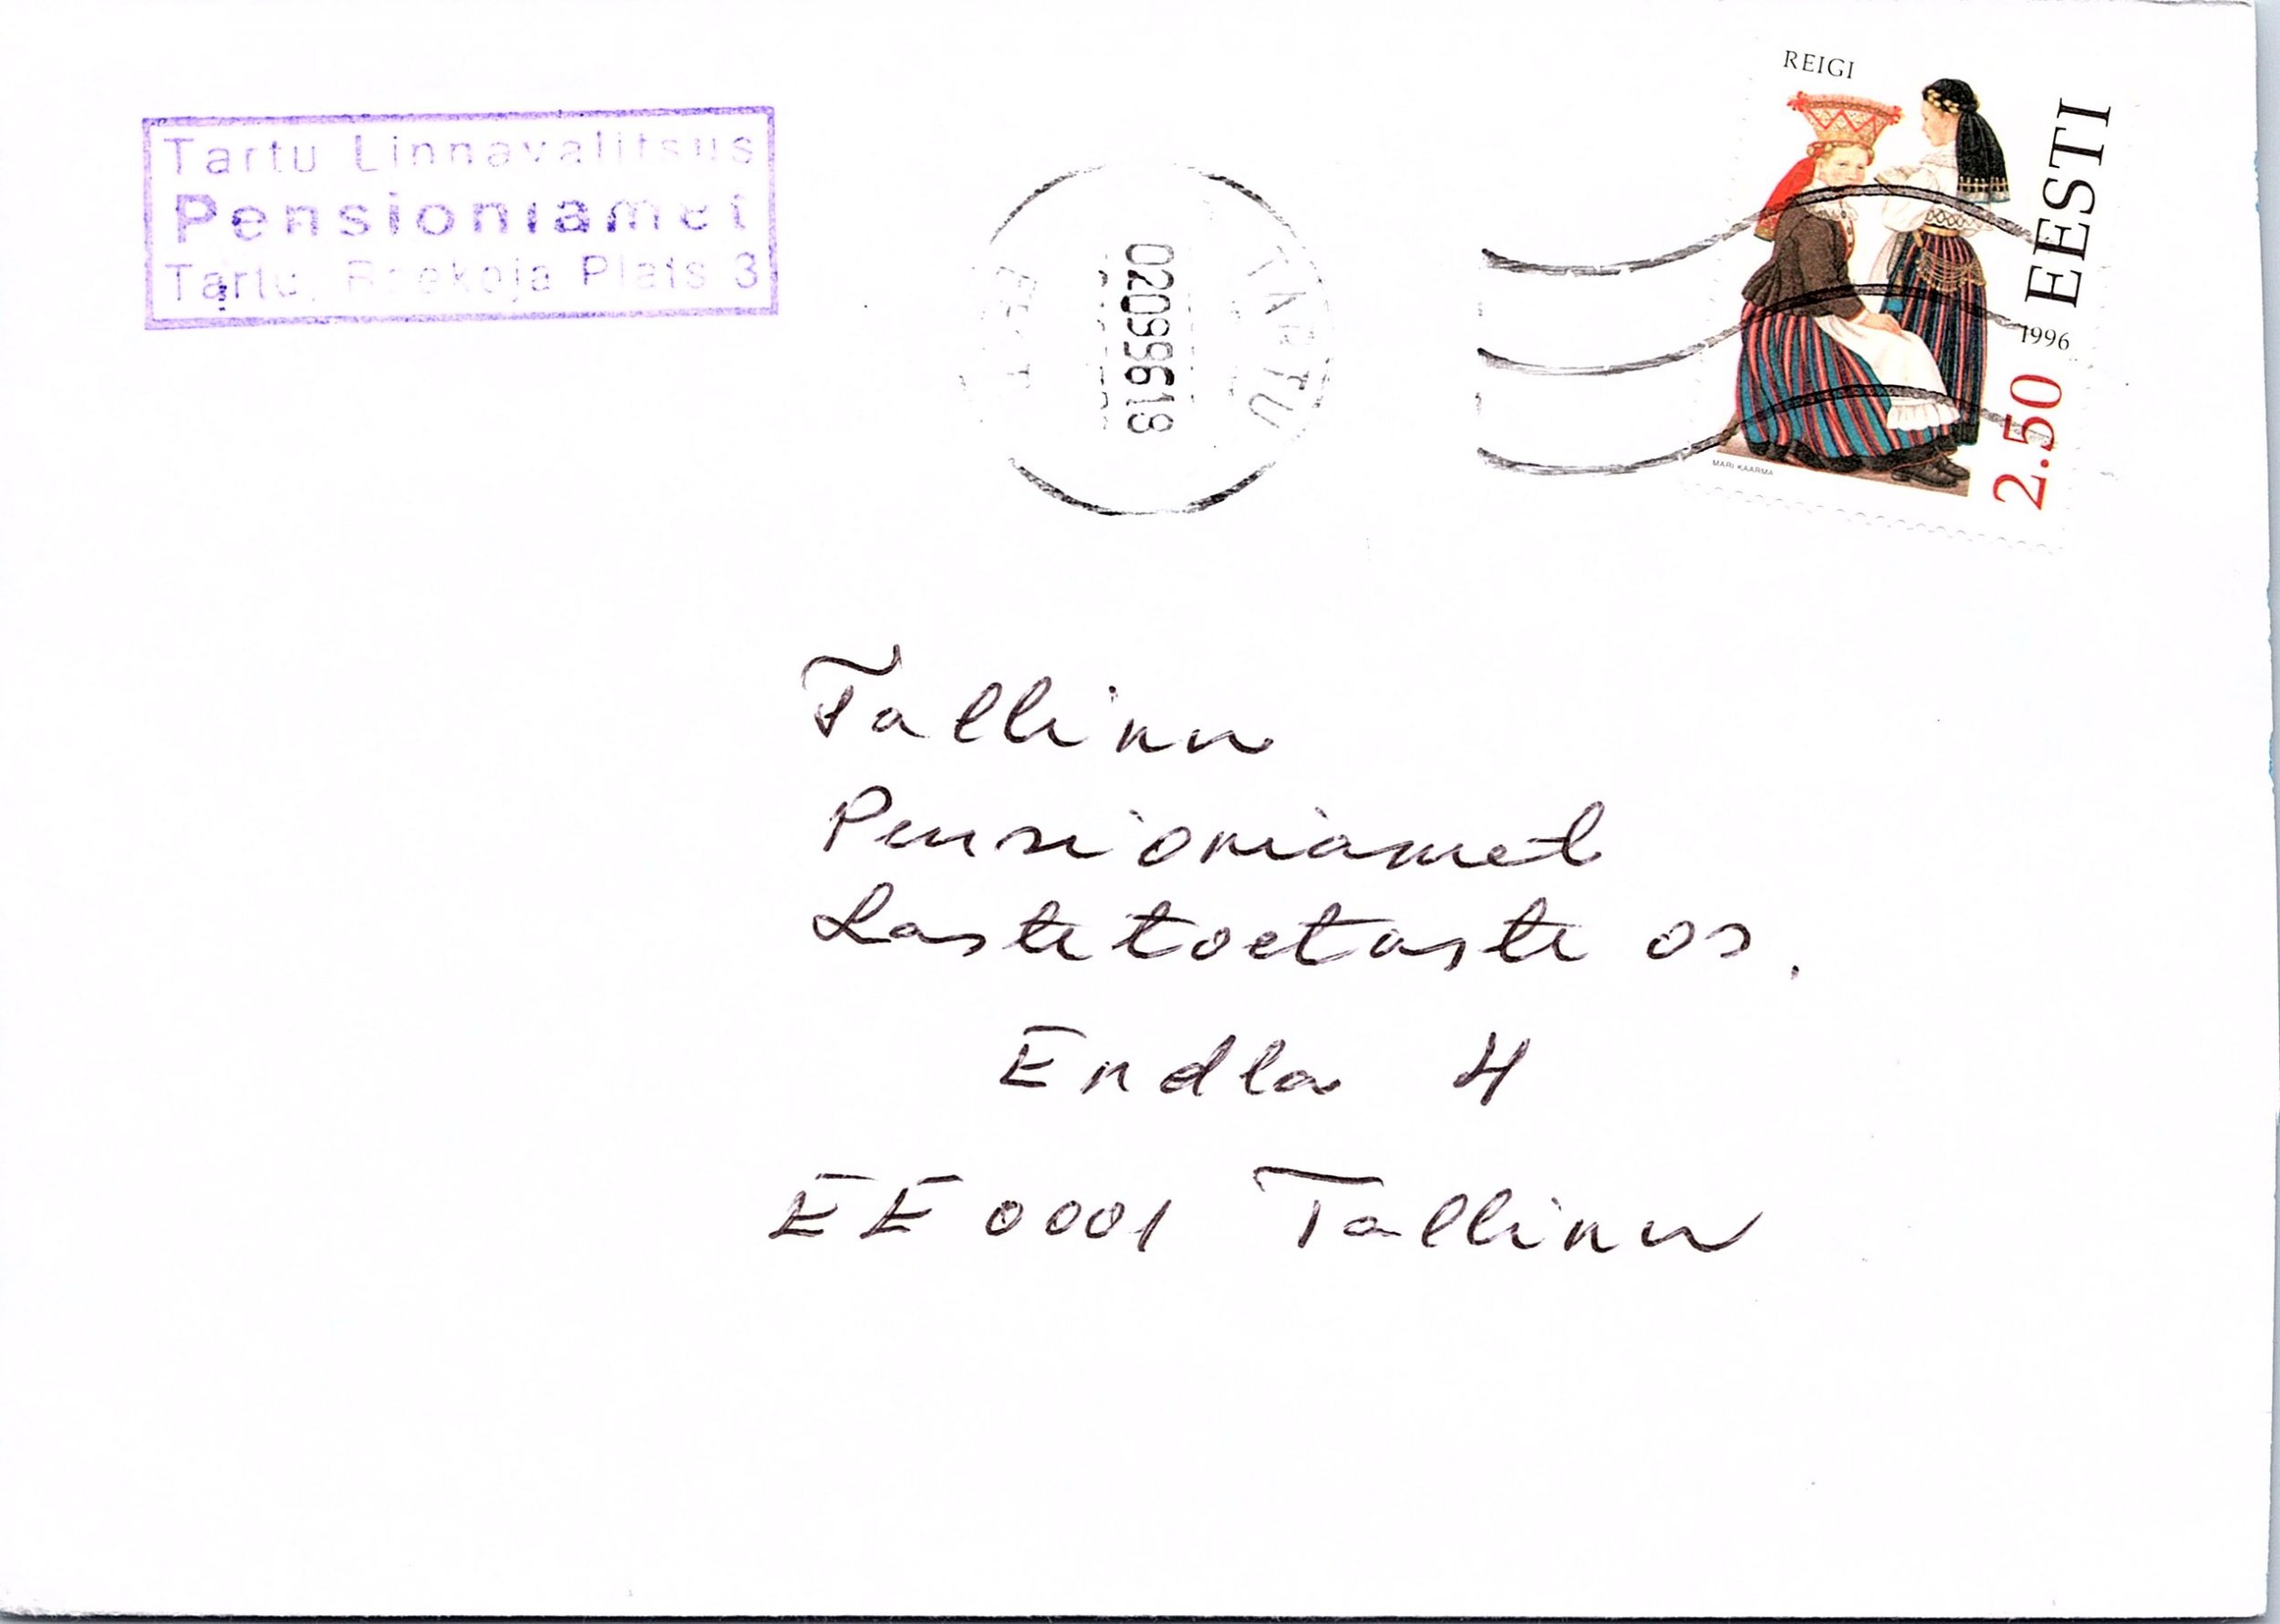 Tartu Linnavalitsus
Pensioniamet
Tartu, Raekoja Plats 3
EESTI
TARTU
02099618
REIGI
EESTI
1996
2.50
MARI KAARMA
Tallinn
Pensioniamet
Lastetoetuste os.
Endla 4
EE0001 Tallinn